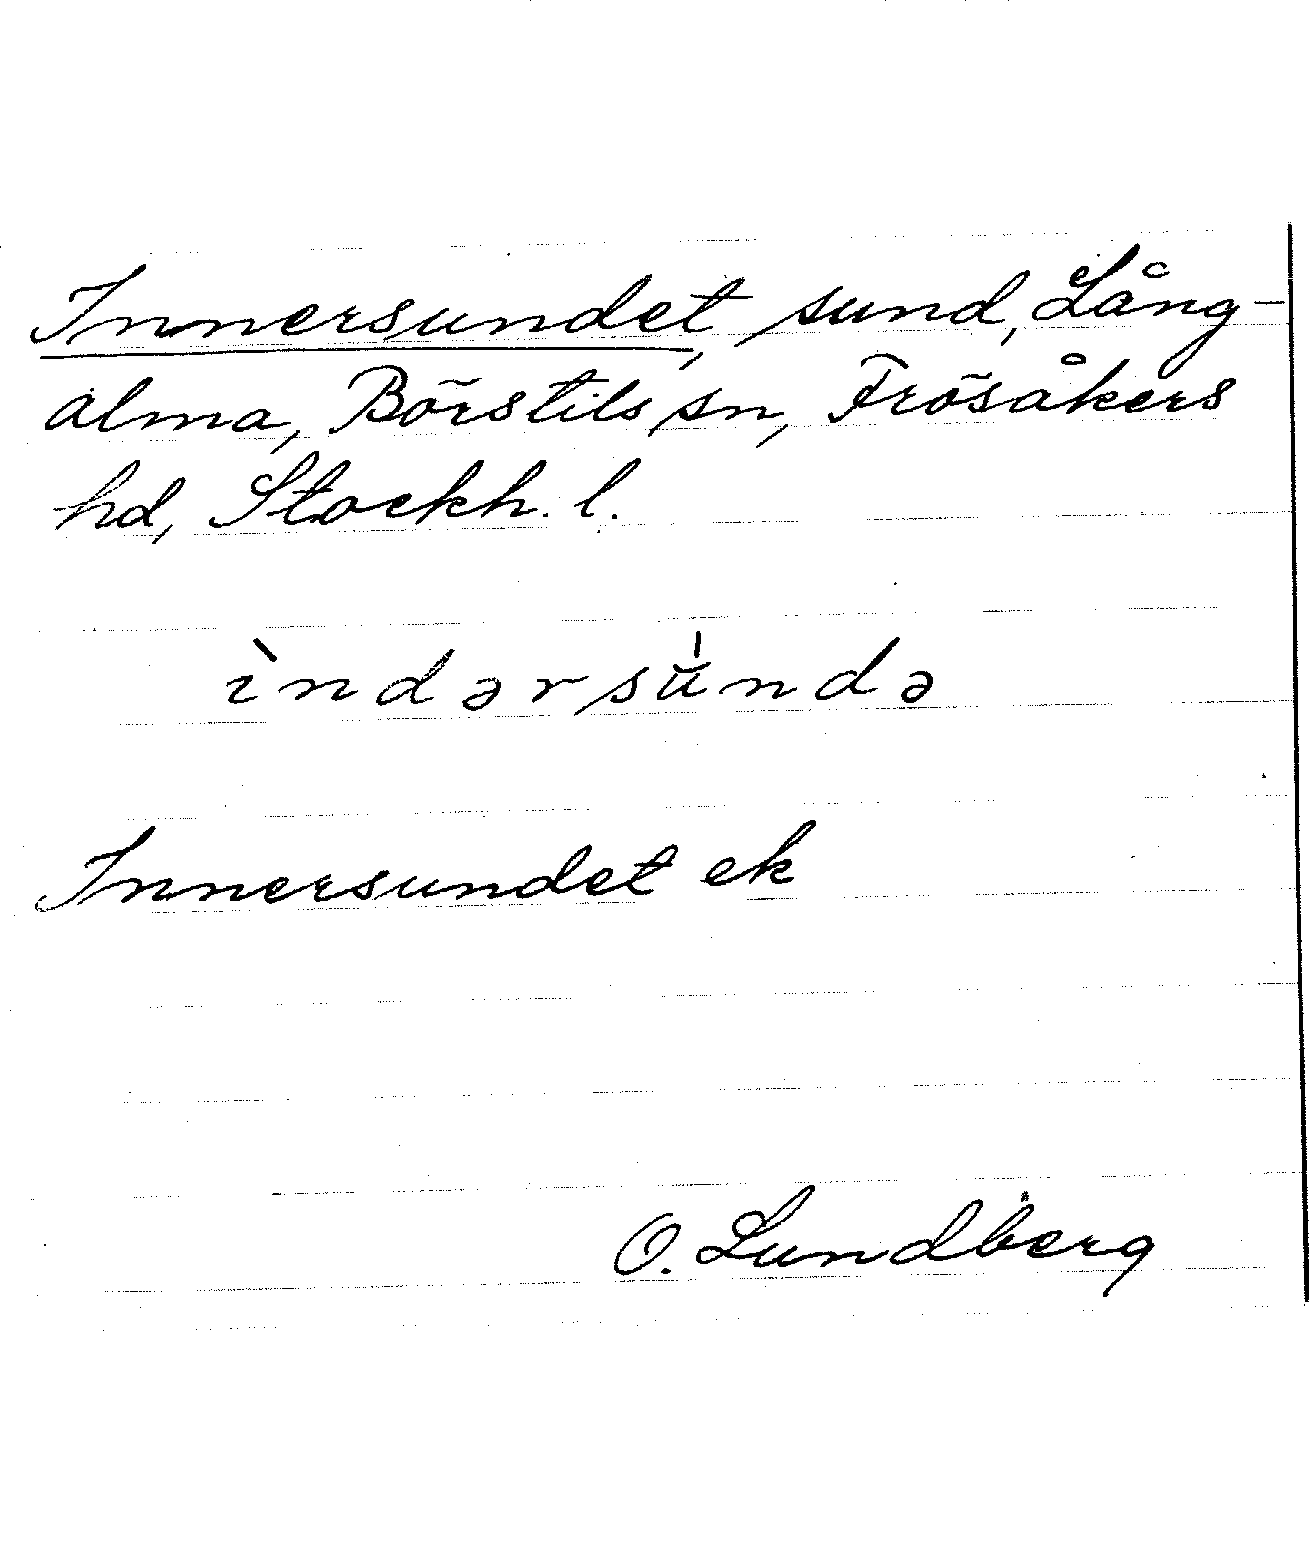 Innersundet, sund, Lång-
alma, Börstils sn, Frösåkers
hd, Stockh. l.
ìndərsu̍ndə
Innersundet ek
O. Lundberg